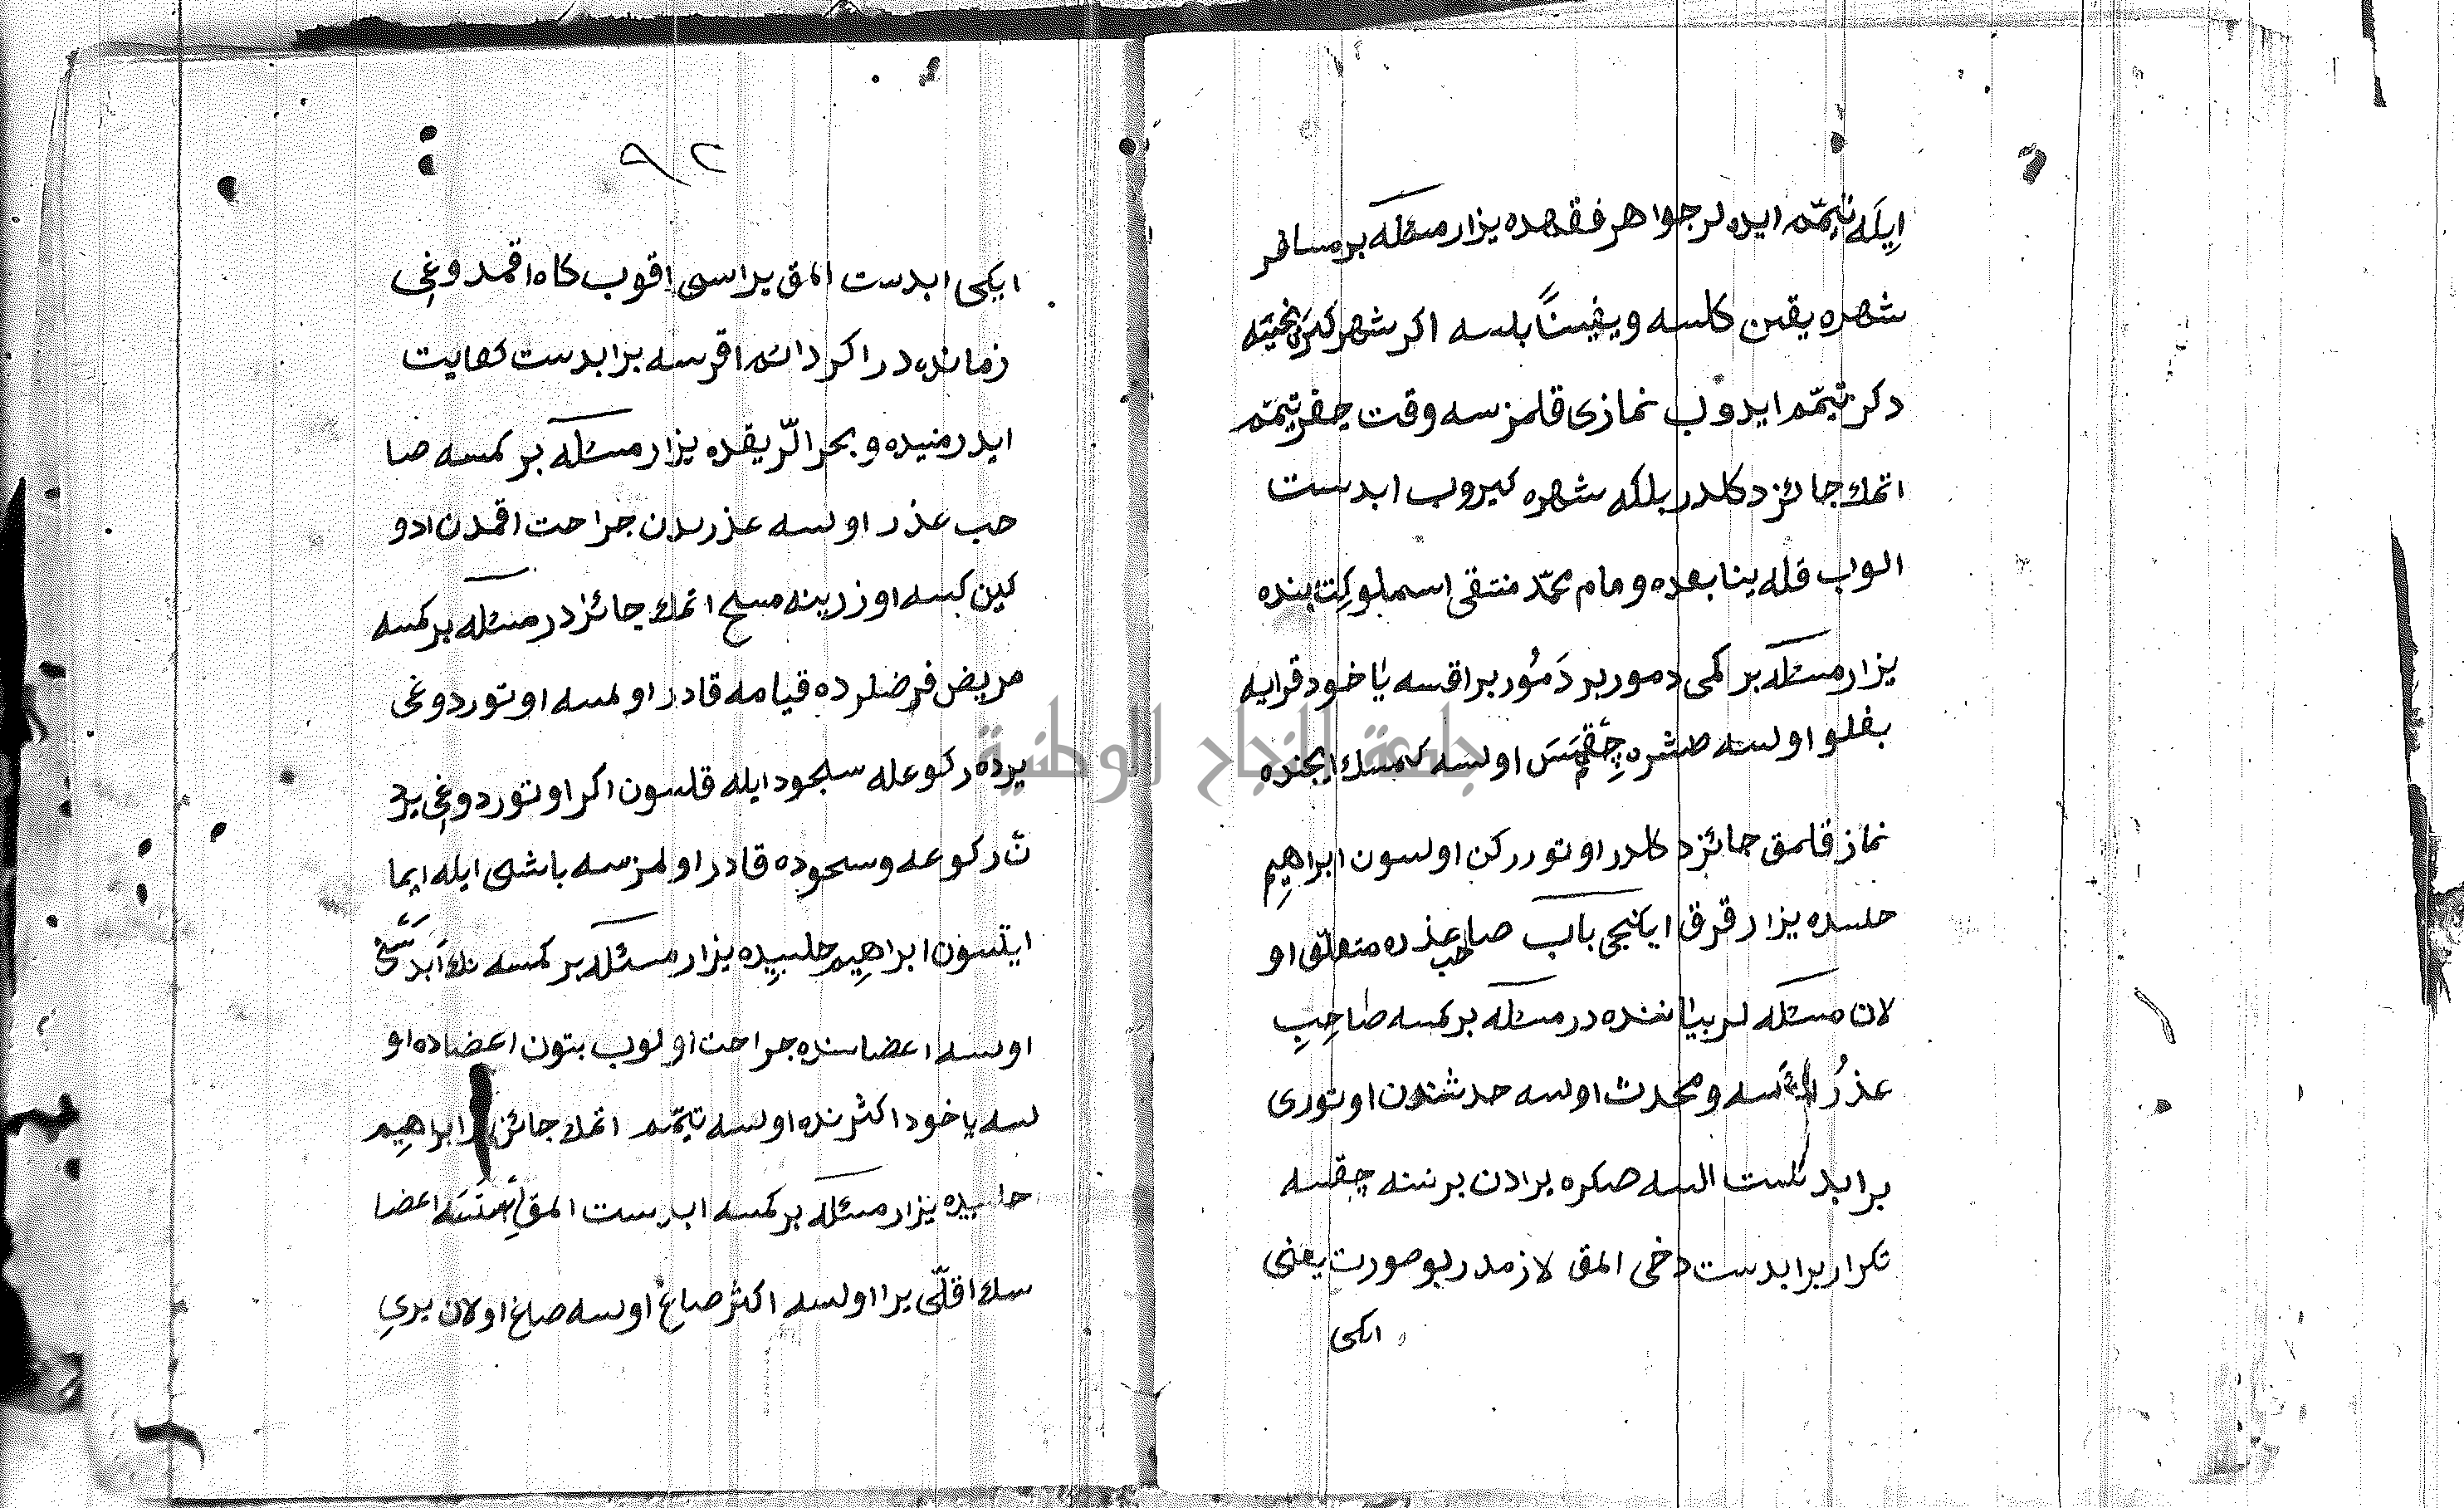 ايله تيمّم ايده لر جواهر فقهده يزار مسئله بر مسافر
شهره يقين كلسه و يقيناً بلسه اكر شهر كيرنجيه
دكن تيمّم ايدوب نمازى قلمزسه وقت چقر تيمّم
اتمك جائز دكلدر بلكه شهره كيروب ابدست
الوب قله ينابعده و مام محمّد منتقى اسملو كتابنده
يزار مسئله بر كمى دمور بر دَمُور براقسه يا خود قرايه
بغلو اولسه طشره چِقمَسَ اولسه كمسك ايجنده
نماز قلمق جائز دكلدر اوتوررکن اولسون ابراهيم
حلبيده يزار قرق ايكنجى باب صاحب عذره متعلّق او
لان مسئله لر بياننده در مسئله بر كمسه صاحِبِ
عذرُ اولسه و محدث اولسه حدثندن اوتورى
بر ابدست السه صكره بر ادن بر نسنه چقسه
تكرار بر ابدست دخى المق لازمدر بو صورت يعنى
ايكى
٩٢
ايكى ابدست المق براسى اقوب كاه اقمدوغى
زمانده در اكر دائم اقرسه بر ابدست كفايت
ايدر منيده و بحر الرّيقده يزار مسئله بر كمسه صا
حب عذر اولسه عذرندن جراحت اقمدن ادو
كين كبسه اوزرينه مسح اتمك جائزدر مسئله بر كمسه
مريض فرضلرده قيامه قادر اولمسه اوتوردوغى
يرده ركوعله سجود ايله قلسون اكر اوتوردوغى يرد
نَ ركوعه و سجوده قادر اولمزسه باشى ايله ايما
ايتسون ابراهيم حلبيده يزار مسئله بر كمسه نك ابدستى
اولسه اعضاسنده جراحت اولوب بتون اعضاده او
لسه يا خود اكثرنده اولسه تيمّم اتمك جائزدر ابراهيم
حلبيده يزار مسئله بر كمسه ابدست المق استسَه اعضا
سنك اقلّى يرا اولسه اكثر صاغ اولسه صاغ اولان يرى
جامعة النجاح الوطنية